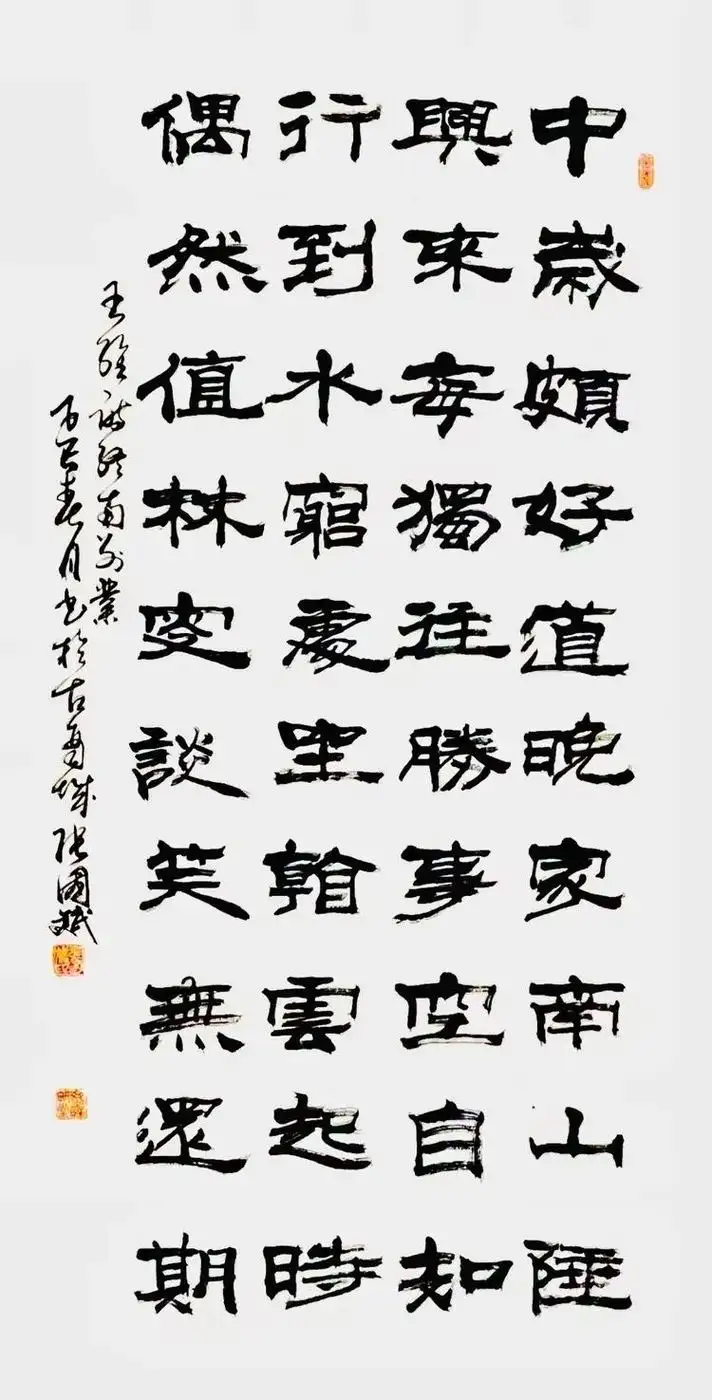 中歲頗好道晚家南山陲
興來每獨往勝事空自知
行到水窮處坐看雲起時
偶然值林叟談笑無還期
王維詩終南別業
乙巳春月書於古甬城張國斌